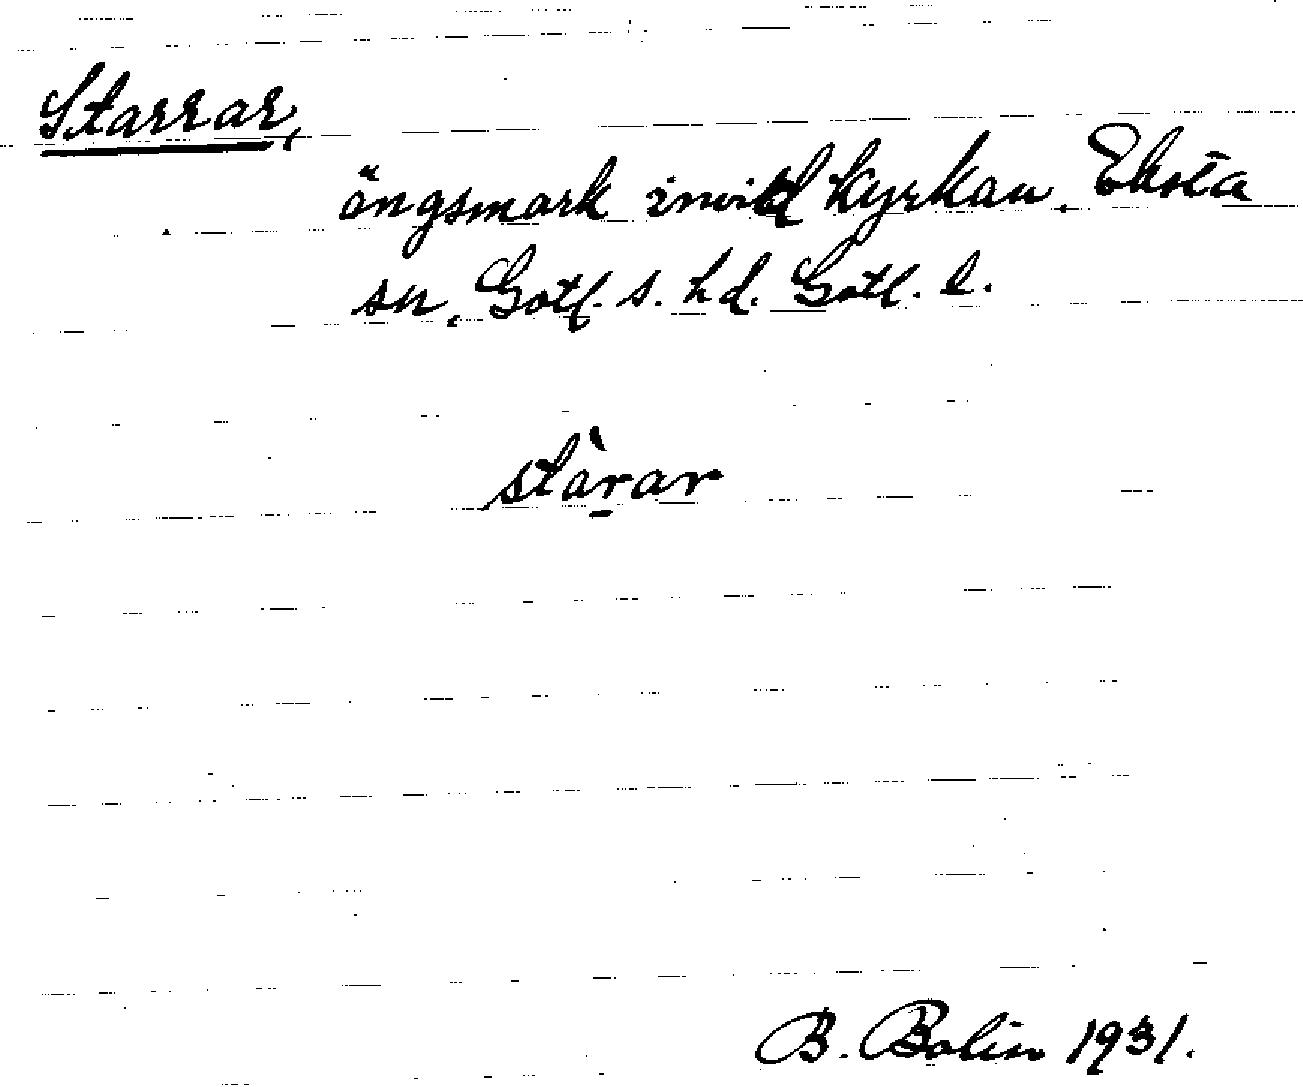 Starrar,
ängsmark invid kyrkan. Eksta
sn, Gotl. s. hd. Gotl. l.
stàrar
B. Bolin 1931.